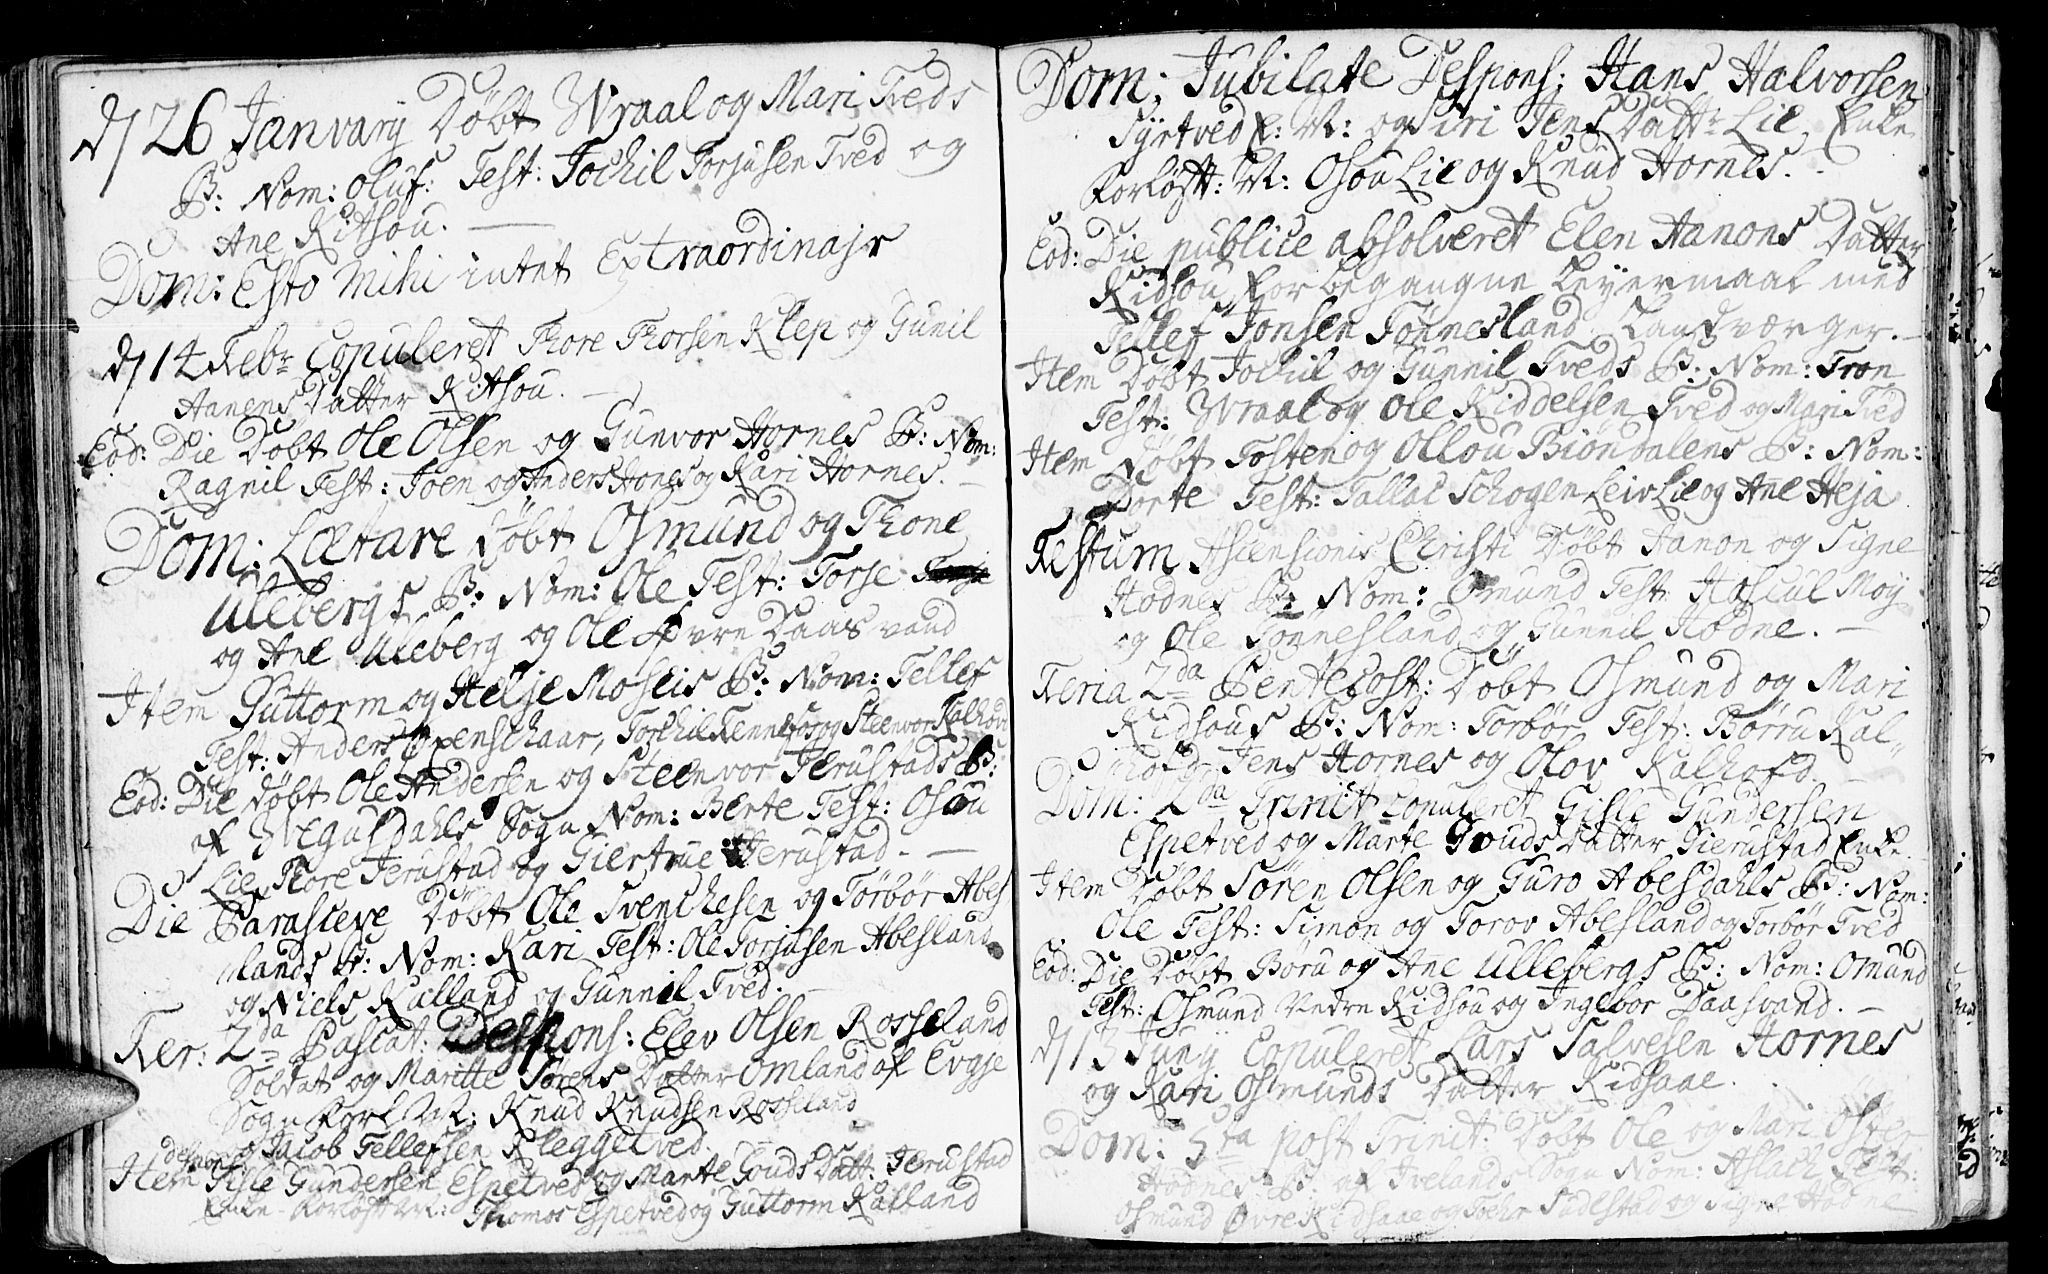 d/ 26 January Døbt Wraal og Mari Tveds
B: Nom: Oluf: Test: Jochil Torjusen Tved og
Ane Kitsou.
Dom: Esto Mihi intet Extraordinajr
d/ 14 Febr Copuleret Thore Thorsen Klep og Gunil
Aanens Datter Kitsou.
Eod: Die Døbt Ole Olsen og Gunvor Hornes B: Nom:
Ragnil Test: Joen og Anders Hones og Kari Hornes.
Dom: Lætare Døbt Osmund og Thone
Ullebergs B: Nom: Ole Test: Torje
og Ane Uleberg og Ole Øvre Daasvand
Item Guttorm og Helje Moseis B: Nom: Tellef
Test: Anders Oxenschaar, Torchil og Steenvor Kalhovd
Eod: Die Døbt Ole Andersen og Steenvor Jerustads B:
af Wegusdahls Sogn Nom: Berte Test: Osou
Lie, Thore Jerustad og Giertrue Jerustad.
Die Parasceve Døbt Ole Svenchesen og Torbør Abes
lands B: Nom: Kari Test: Ole Torjusen Abesland
og Niels Kalland og Gunnil Tved.
Fer: 2da Pascat: Despons: Elev Olsen Rosseland
Soldat og Maritte Sørens Datter Omland af Evgje
Sogn Forl: M: Knud Knudsen Rosseland
og Jacob Tellefsen Kleggetved.
Item Gisle Gundersen Espetved og Marte Gouds Datt: Jerustad
Enke. Forløfft M: Thomos Espetved og Guttorm Kalland
Dom: Jubilate Despons: Hans Halvorsen
Syrtved E: M: og Siri Jens Dattr Lie, Enke
Forløfft: M: Osou Lie og Knud Hornes.
Eod: Die publice absolveret Elen Aanons Datter
Kidsou for begangne Leyermaal med
Tellef Jonsen Tønnesland Landværger.
Item Døbt Jochil og Gunnil Tveds B: Nom: Tron
Test: Wraal og Ole Kiddelsen Tved og Mari Tved
Item Døbt Tosten og Ollou Biøndalens B: Nom:
Dorte Test: Tallac Schogen Leiv Lie og Ane Heja
Festum Ascensionis Christi Døbt Aanon og Signe
Hodnes B: Nom: Omund Test: Hoscul Moy
og Ole Tønnesland og Gunnil Hodne.
Feria 2da Pentecost: Døbt Osmund og Mari
Kidsous B: Nom: Torbør Test: Børru Kal-
hofd Jens Hornes og Olov Kalhofd.
Dom: 2da Trinit copuleret Gisle Gundersen
Espetved og Marte Gouds Datter Gierustad Enke.
Item Døbt Søren Olsen og Guro Abesdahls B: Nom:
Ole Test: Simon og Torov Abesland og Torbør Tved
Eod: Die Døbt Børu og Ane Ullebergs B: Nom: Omund
Test: Osmund Nedre Kidsou og Ingebor Daasvand.
d/ 13 Juny Copuleret Lars Salvesen Hornes
og Kari Osmunds Datter Kidsaae.
Dom: 5ta post Trinit: Døbt Ole og Mari Øster
Hodnes B: af Ivelands Sogn Nom: Aslach Test:
Osmund Øvre Kidsaae og Tochr Sadelstad og Signe Hodne